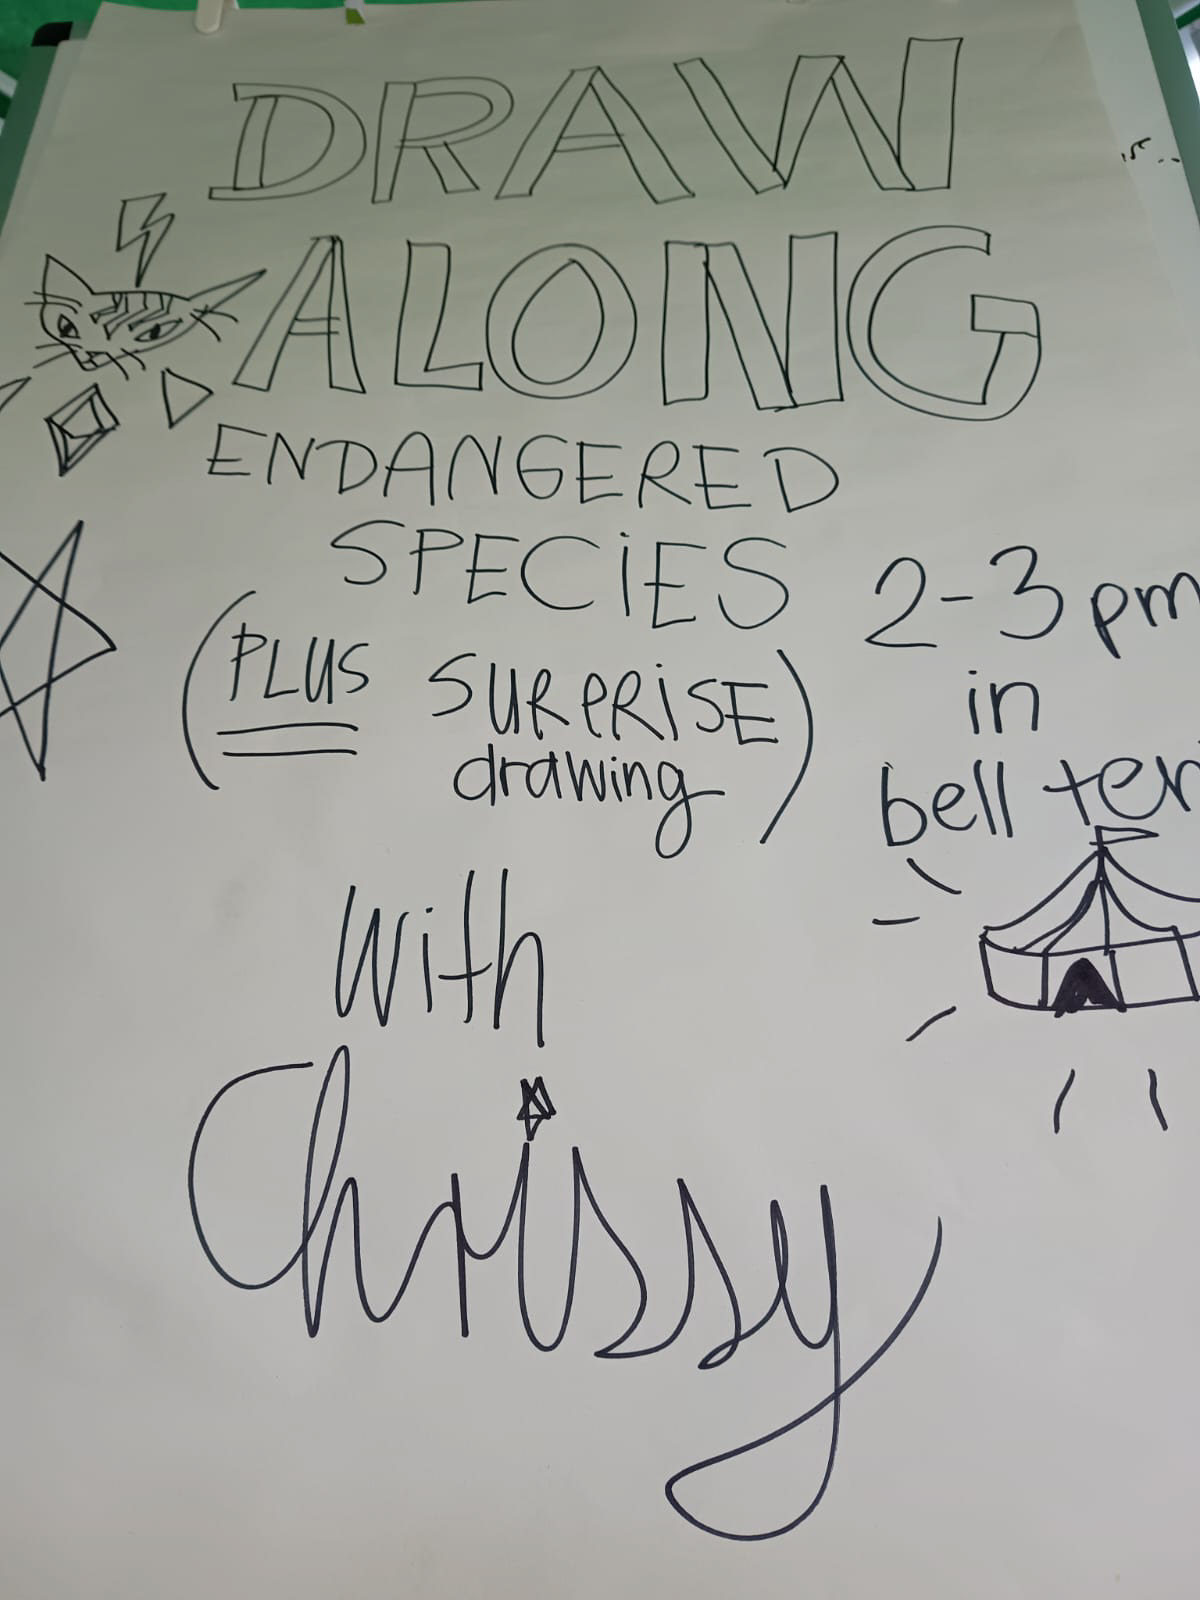 DRAW
ALONG
ENDANGERED
SPECiES
(PLUS SURPRiSE
drawing)
2-3pm
in
bell ten
with
Chrissy